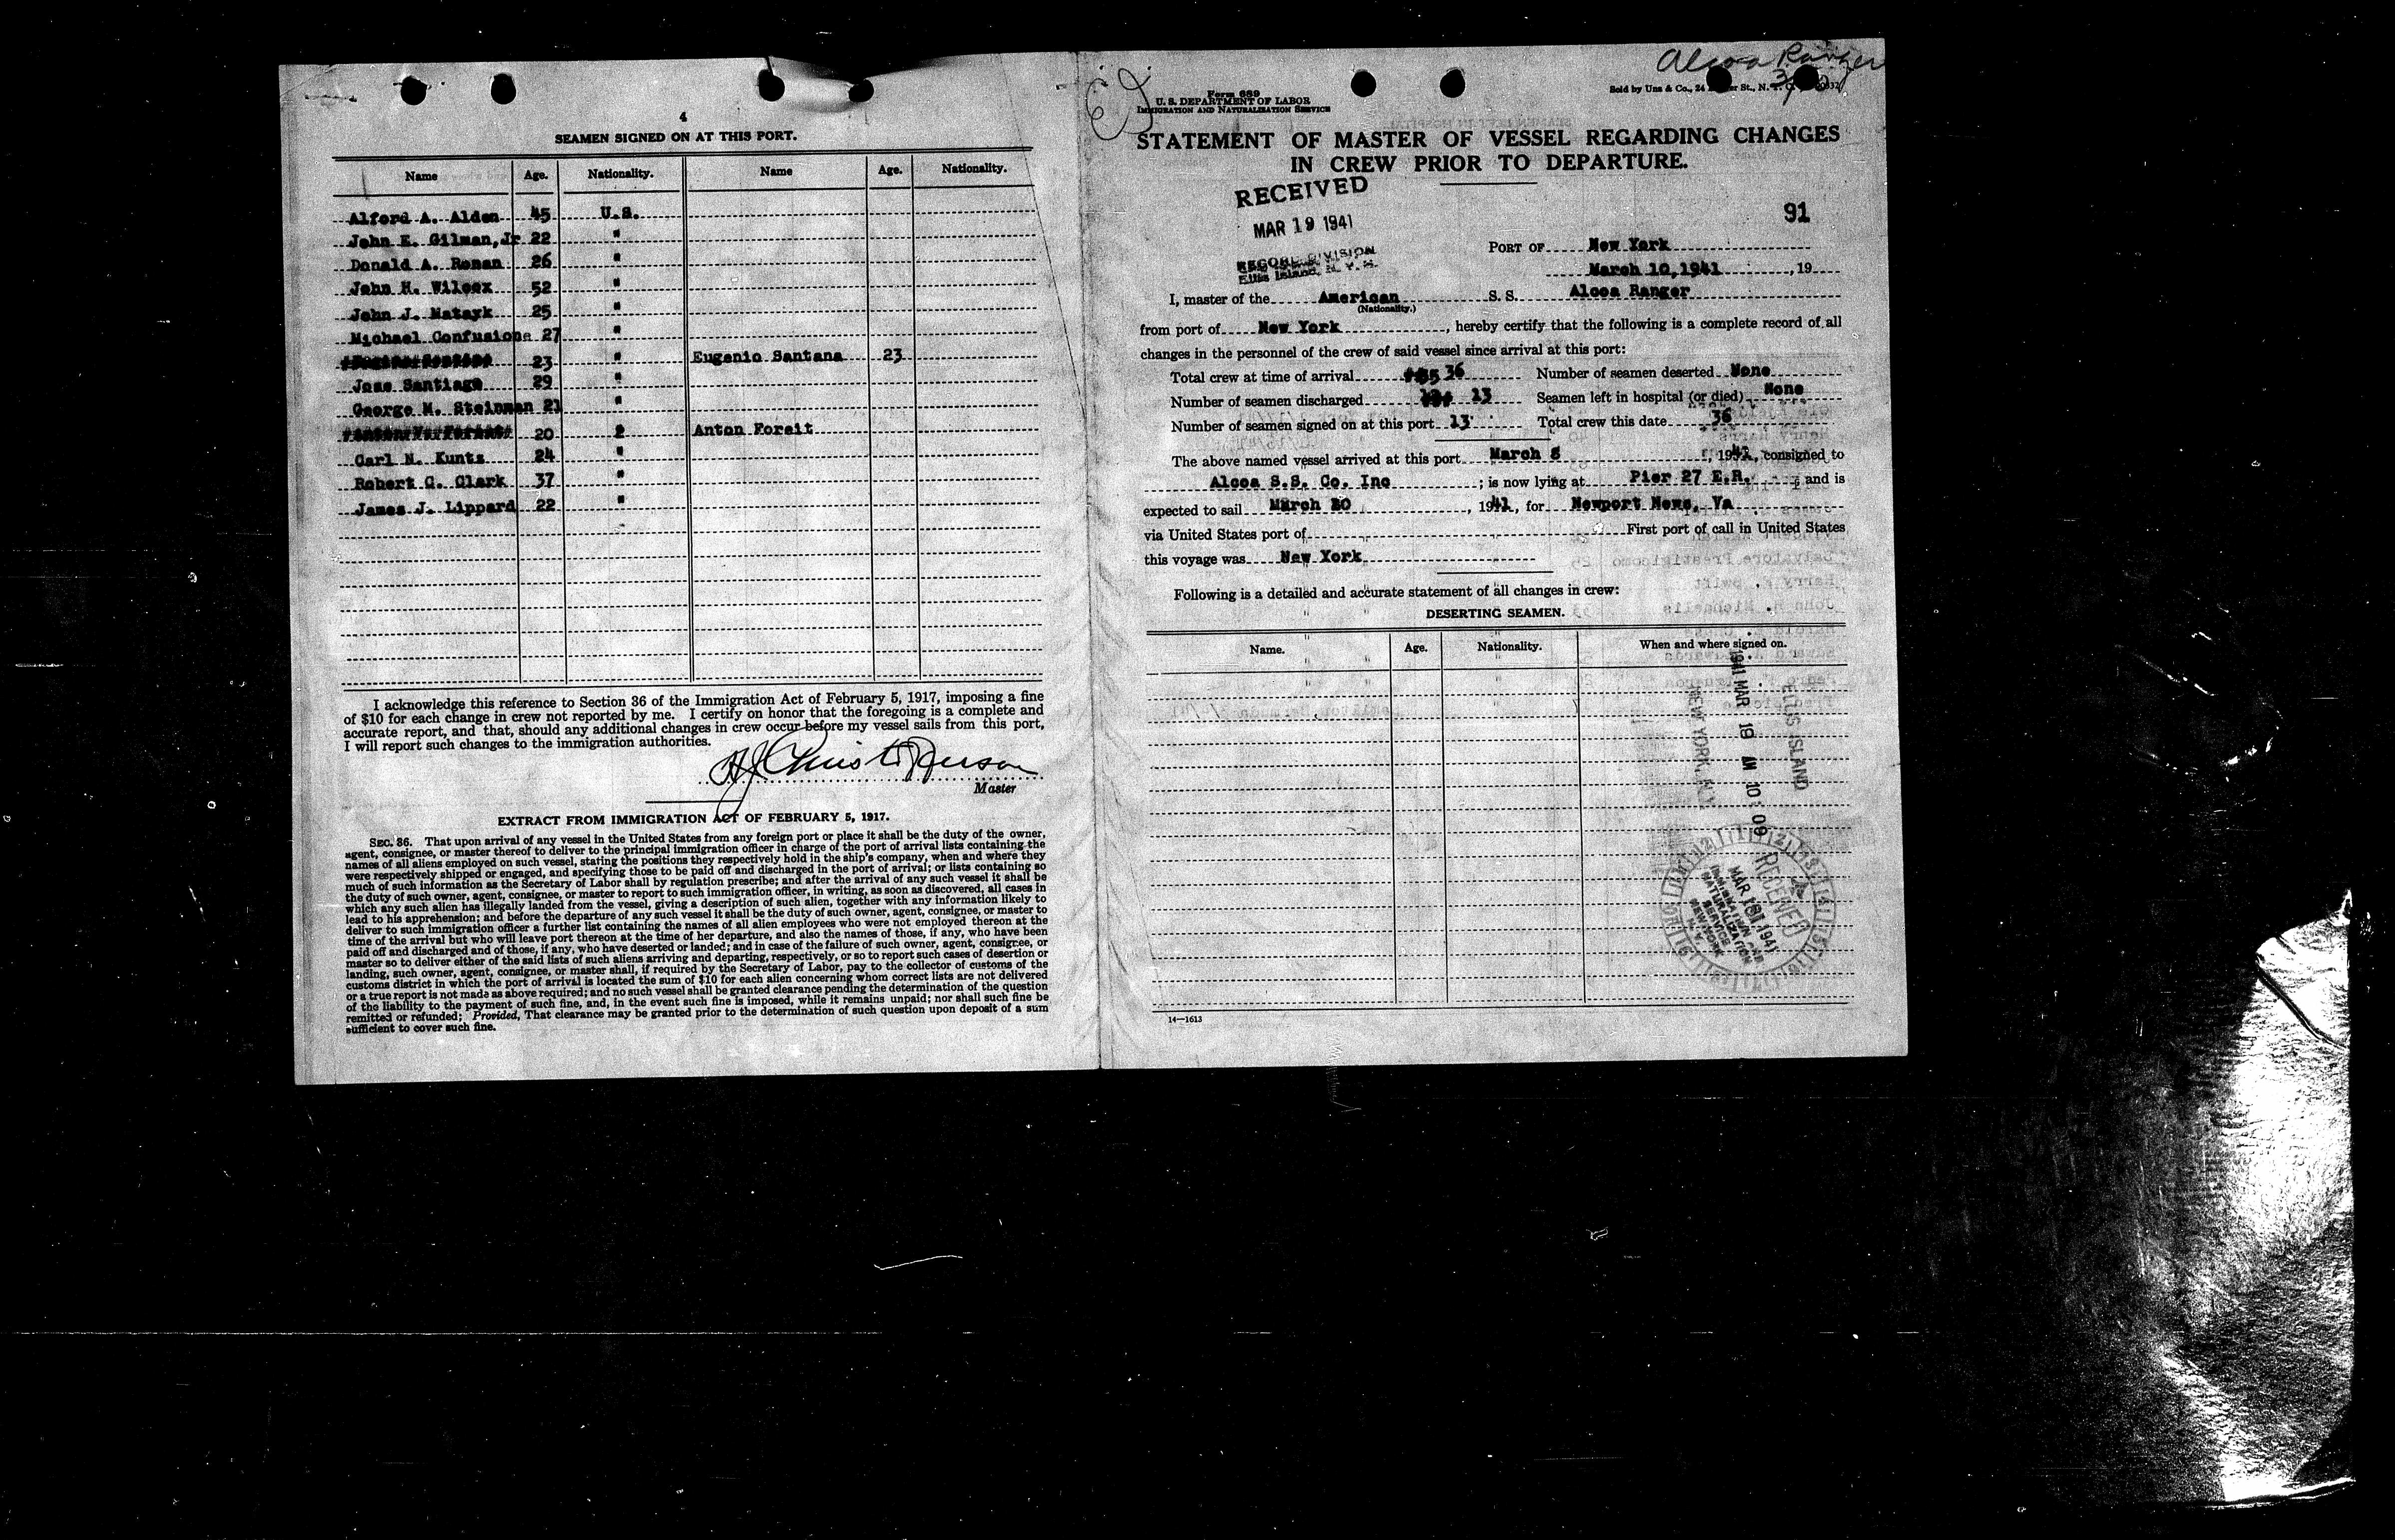 4
SEAMEN SIGNED ON AT THIS PORT.
Name Age. Nationality. Name Age. Nationality.
Alford A. Alden 45 U.S.
John E. Gilman, Jr 22 "
Donald A. Ronan 26 "
John H. Wilcox 52 "
John J. Matayk 25 "
Michael Confusione 27 "
23 " Eugenio Santana 23
Jose Santiago 29 "
George M. Steinman 21 "
20 Anton Foreit
Carl N. Kuntz 24 "
Robert C. Clark 37 "
James J. Lippard 22 "
I acknowledge this reference to Section 36 of the Immigration Act of February 5, 1917, imposing a fine
of $10 for each change in crew not reported by me. I certify on honor that the foregoing is a complete and
accurate report, and that, should any additional changes in crew occur before my vessel sails from this port,
I will report such changes to the immigration authorities.
H J Christofferson
Master
EXTRACT FROM IMMIGRATION ACT OF FEBRUARY 5, 1917.
SEC. 36. That upon arrival of any vessel in the United States from any foreign port or place it shall be the duty of the owner,
agent, consignee, or master thereof to deliver to the principal immigration officer in charge of the port of arrival lists containing the
names of all aliens employed on such vessel, stating the positions they respectively hold in the ship's company, when and where they
were respectively shipped or engaged, and specifying those to be paid off and discharged in the port of arrival; or lists containing so
much of such information as the Secretary of Labor shall by regulation prescribe; and after the arrival of any such vessel it shall be
the duty of such owner, agent, consignee, or master to report to such immigration officer, in writing, as soon as discovered, all cases in
which any such alien has illegally landed from the vessel, giving a description of such alien, together with any information likely to
lead to his apprehension; and before the departure of any such vessel it shall be the duty of such owner, agent, consignee, or master to
deliver to such immigration officer a further list containing the names of all alien employees who were not employed thereon at the
time of the arrival but who will leave port thereon at the time of her departure, and also the names of those, if any, who have been
paid off and discharged and of those, if any, who have deserted or landed; and in case of the failure of such owner, agent, consignee, or
master so to deliver either of the said lists of such aliens arriving and departing, respectively, or so to report such cases of desertion or
landing, such owner, agent, consignee, or master shall, if required by the Secretary of Labor, pay to the collector of customs of the
customs district in which the port of arrival is located the sum of $10 for each alien concerning whom correct lists are not delivered
or a true report is not made as above required; and no such vessel shall be granted clearance pending the determination of the question
of the liability to the payment of such fine, and, in the event such fine is imposed, while it remains unpaid; nor shall such fine be
remitted or refunded; Provided, That clearance may be granted prior to the determination of such question upon deposit of a sum
sufficient to cover such fine.
Alcoa Ranger
Form 689
U. S. DEPARTMENT OF LABOR
IMMIGRATION AND NATURALIZATION SERVICE
Sold by Unz & Co., 24 St., N. Y. C.
STATEMENT OF MASTER OF VESSEL REGARDING CHANGES
IN CREW PRIOR TO DEPARTURE.
RECEIVED
MAR 19 1941
RECORD DIVISION
Ellis Island, N. Y. H.
91
PORT OF New York
March 10, 1941, 19
I, master of the American S. S. Alcoa Ranger
(Nationality.)
from port of New York, hereby certify that the following is a complete record of all
changes in the personnel of the crew of said vessel since arrival at this port:
Total crew at time of arrival 36 Number of seamen deserted None
Number of seamen discharged 13 Seamen left in hospital (or died) None
Number of seamen signed on at this port 13 Total crew this date 36
The above named vessel arrived at this port March 8, 1941, consigned to
Alcoa S.S. Co. Inc; is now lying at Pier 27 E.R. and is
expected to sail March, 1941, for Newport News, Va
via United States port of First port of call in United States
this voyage was New York
Following is a detailed and accurate statement of all changes in crew:
DESERTING SEAMEN.
Name. Age. Nationality. When and where signed on.
1941 MAR 19 AM 10:09
ELLIS ISLAND
NEW YORK, N.Y.
RECEIVED
MAR 18 1941
IMMIGRATION AND
NATURALIZATION
SERVICE
NEW YORK
N. Y.
14—1613